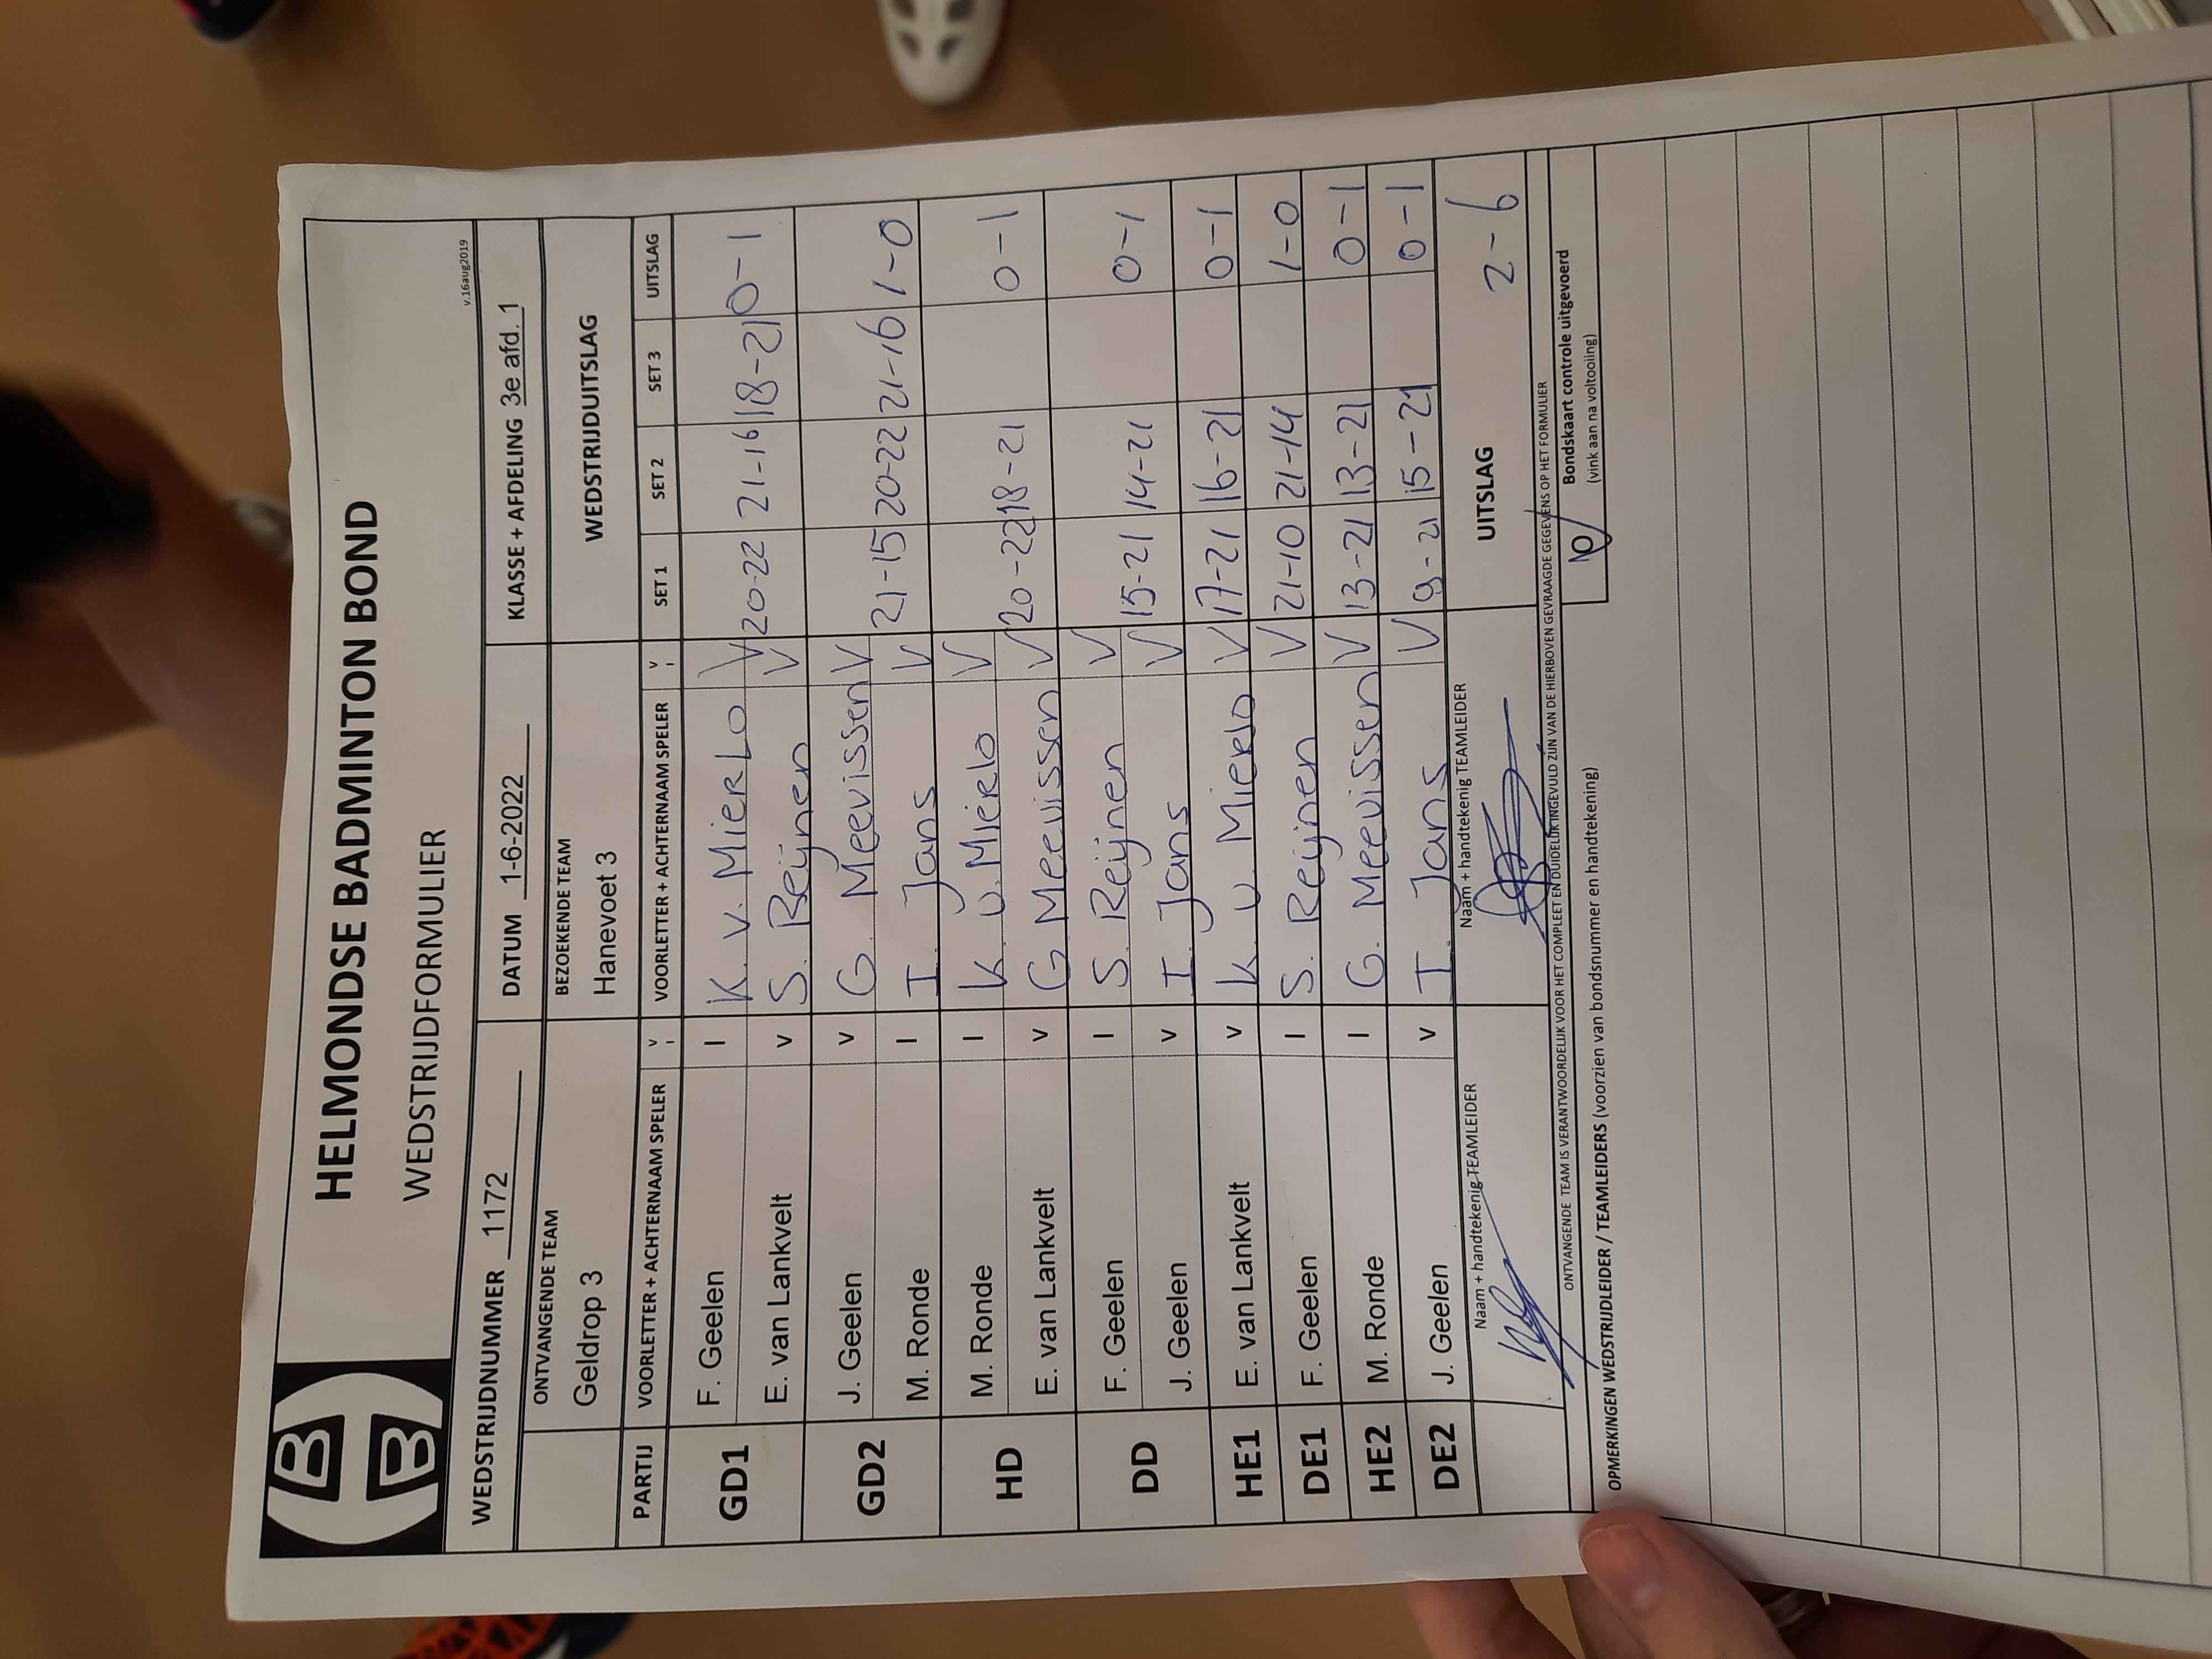 HELMONDSE BADMINTON BOND
WEDSTRIJDFORMULIER
v.16aug2019
WEDSTRIJDNUMMER 1172 DATUM 1-6-2022 KLASSE + AFDELING 3e afd. 1
ONTVANGENDE TEAM BEZOEKENDE TEAM WEDSTRIJDUITSLAG
Geldrop 3 Hanevoet 3
PARTIJ VOORLETTER + ACHTERNAAM SPELER V I VOORLETTER + ACHTERNAAM SPELER V I SET 1 SET 2 SET 3 UITSLAG
GD1 F. Geelen I K. v. Mierlo V
E. van Lankvelt v S. Reijnen V 20-22 21-16 18-21 0-1
GD2 J. Geelen v G. Meevissen V
M. Ronde I I. Jans V 21-15 20-22 21-16 1-0
HD M. Ronde I K. v. Mierlo V
E. van Lankvelt v G Meevissen V 20-22 18-21 0-1
DD F. Geelen I S. Reijnen V
J. Geelen v I. Jans V 15-21 14-21 0-1
HE1 E. van Lankvelt v K v. Mierlo V 17-21 16-21 0-1
DE1 F. Geelen I S. Reijnen V 21-10 21-14 1-0
HE2 M. Ronde I G. Meevissen V 13-21 13-21 0-1
DE2 J. Geelen v I. Jans V 9-21 15-21 0-1
Naam + handtekenig TEAMLEIDER Naam + handtekenig TEAMLEIDER UITSLAG 2-6
ONTVANGENDE TEAM IS VERANTWOORDELIJK VOOR HET COMPLEET EN DUIDELIJK INGEVULD ZIJN VAN DE HIERBOVEN GEVRAAGDE GEGEVENS OP HET FORMULIER
Bondskaart controle uitgevoerd
(vink aan na voltooiing)
OPMERKINGEN WEDSTRIJDLEIDER / TEAMLEIDERS (voorzien van bondsnummer en handtekening)